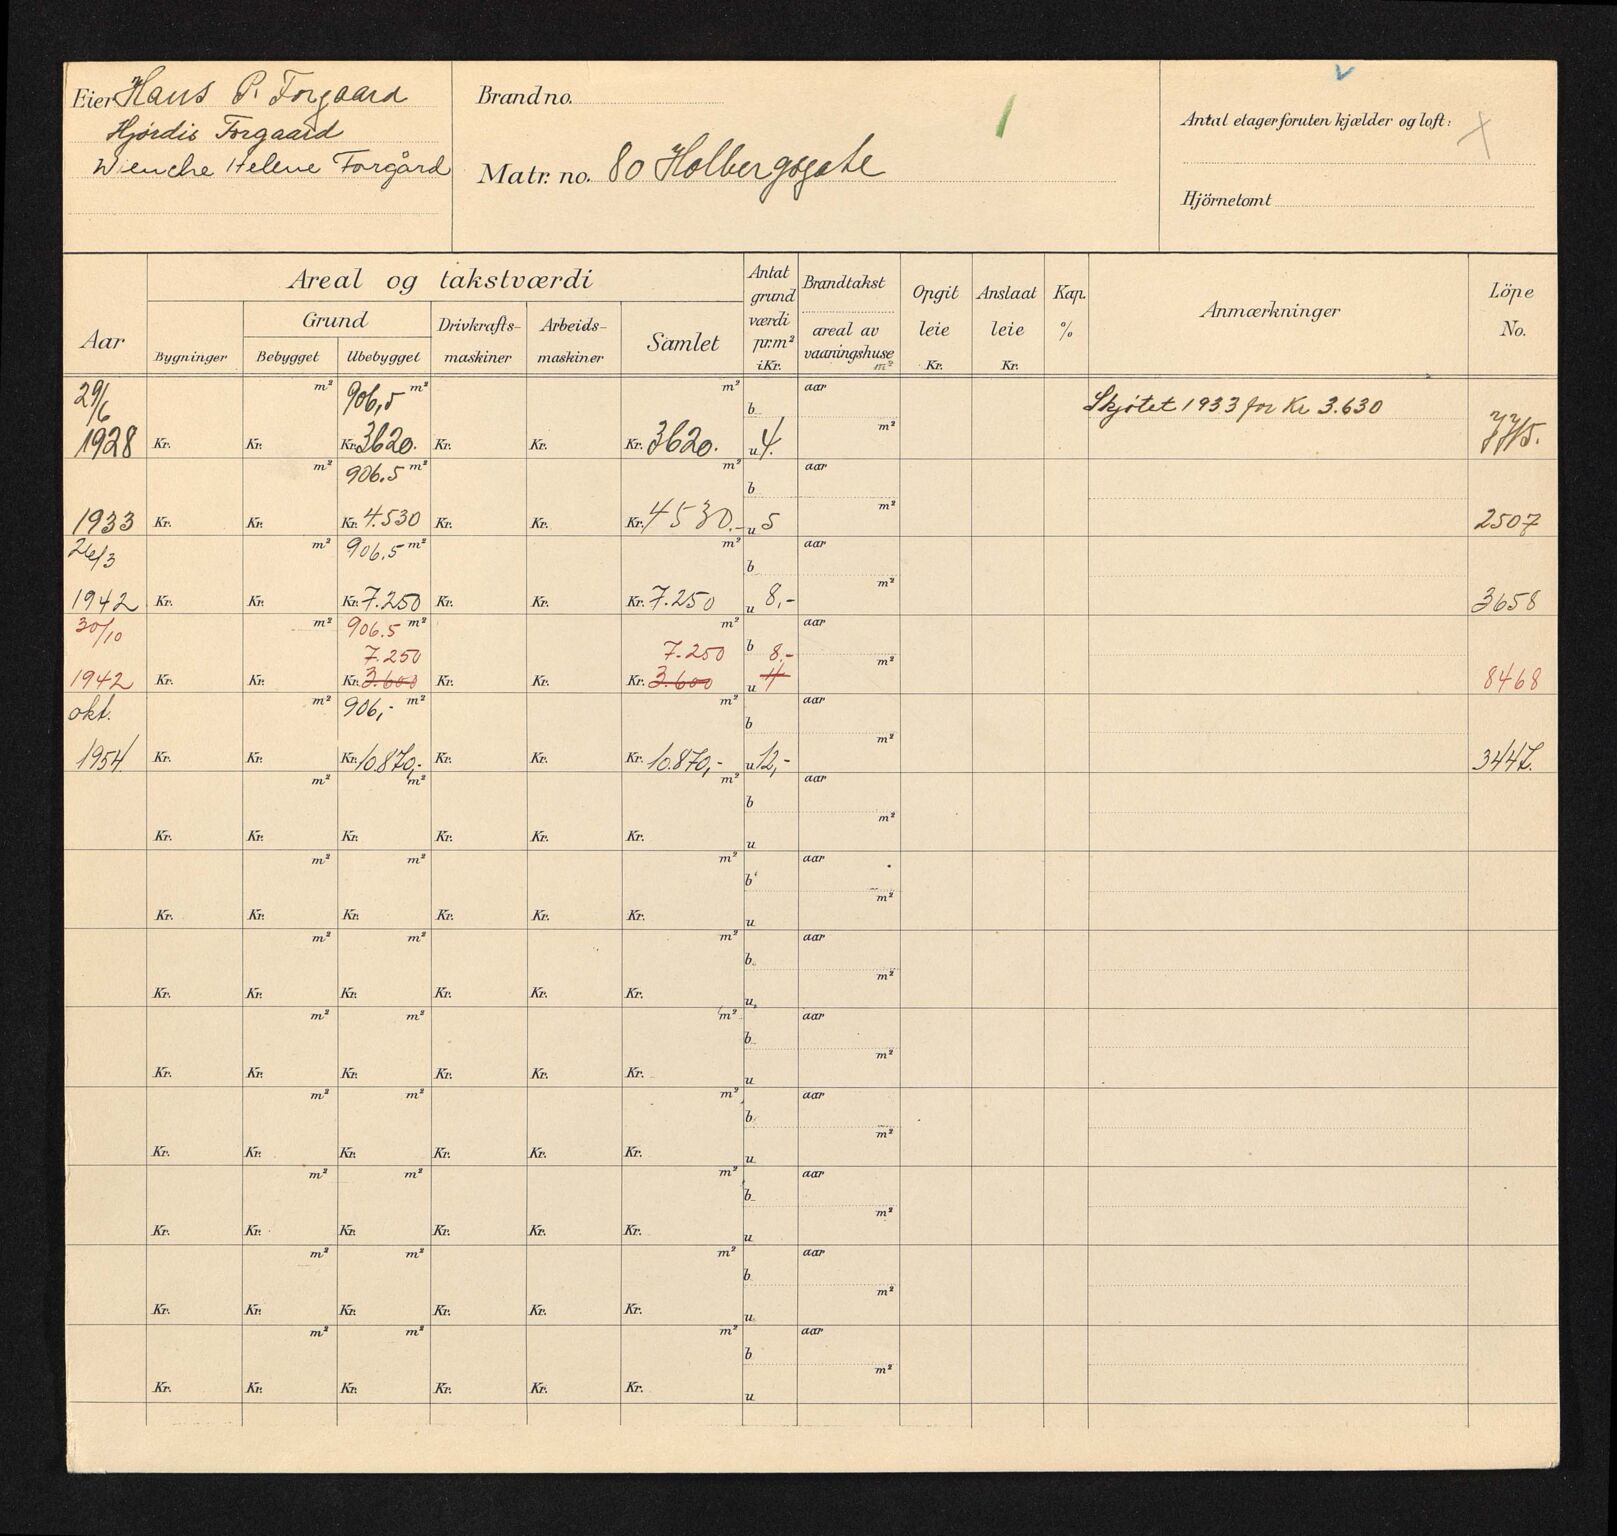 Eier Hans P. Forgaard
Hjørdis Forgaard
Wenche Helene Forgård
Brand no.
Matr. no. 80 Holbergsgate
Antal etager foruten kjælder og loft:
Hjörnetomt
Aar
Areal og takstværdi
Grund
Bygninger
Bebygget
Ubebygget
Drivkrafts-
maskiner
Arbeids-
maskiner
Samlet
Antat
grund
værdi
pr.m²
i Kr.
Brandtakst
areal av
vaaningshuse
m²
Opgit
leie
Kr.
Anslaat
leie
Kr.
Kap.
%
Anmærkninger
Löpe
No.
29/6 m² 906,5 m² m² b aar Skjøtet 1933 for Kr 3.630
1928 Kr. Kr. Kr. 3620. Kr. Kr. Kr. 3620. u 4. m²
m² 906.5 m² m² b aar
1933 Kr. Kr. Kr. 4.530 Kr. Kr. Kr. 4530.- u 5 m² 2507
26/3 m² 906.5 m² m² b aar
1942 Kr. Kr. Kr. 7.250 Kr. Kr. Kr. 7.250 u 8,- m² 3658
30/10 m² 906.5 m² m² aar
7.250 7.250 b 8.-
1942 Kr. Kr. Kr. 3.600 Kr. Kr. Kr. 3.600 u 4 m² 8468
okt. m² 906,- m² m² b aar
1954 Kr. Kr. Kr. 10.870,- Kr. Kr. Kr. 10.870,- u 12,- m² 3447.
m² m² m² b aar
Kr. Kr. Kr. Kr. Kr. Kr. u m²
m² m² m² b aar
Kr. Kr. Kr. Kr. Kr. Kr. u m²
m² m² m² b aar
Kr. Kr. Kr. Kr. Kr. Kr. u m²
m² m² m² b aar
Kr. Kr. Kr. Kr. Kr. Kr. u m²
m² m² m² b aar
Kr. Kr. Kr. Kr. Kr. Kr. u m²
m² m² m² b aar
Kr. Kr. Kr. Kr. Kr. Kr. u m²
m² m² m² b aar
Kr. Kr. Kr. Kr. Kr. Kr. u m²
m² m² m² b aar
Kr. Kr. Kr. Kr. Kr. Kr. u m²